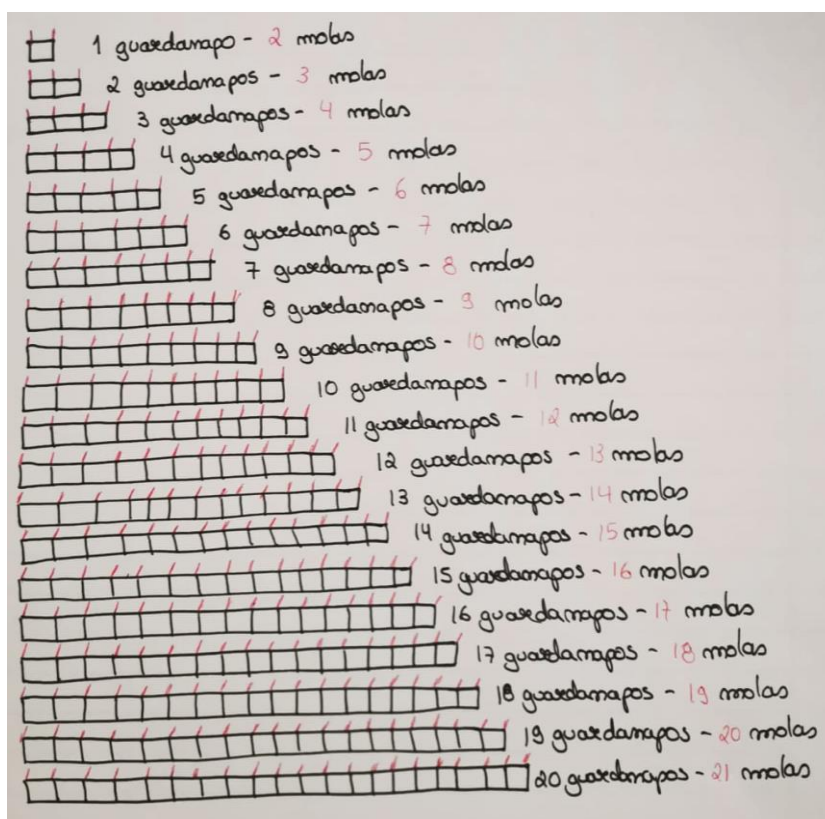 1 guardanapo - 2 molas
2 guardanapos - 3 molas
3 guardanapos - 4 molas
4 guardanapos - 5 molas
5 guardanapos - 6 molas
6 guardanapos - 7 molas
7 guardanapos - 8 molas
8 guardanapos - 9 molas
9 guardanapos - 10 molas
10 guardanapos - 11 molas
11 guardanapos - 12 molas
12 guardanapos - 13 molas
13 guardanapos - 14 molas
14 guardanapos - 15 molas
15 guardanapos - 16 molas
16 guardanapos - 17 molas
17 guardanapos - 18 molas
18 guardanapos - 19 molas
19 guardanapos - 20 molas
20 guardanapos - 21 molas